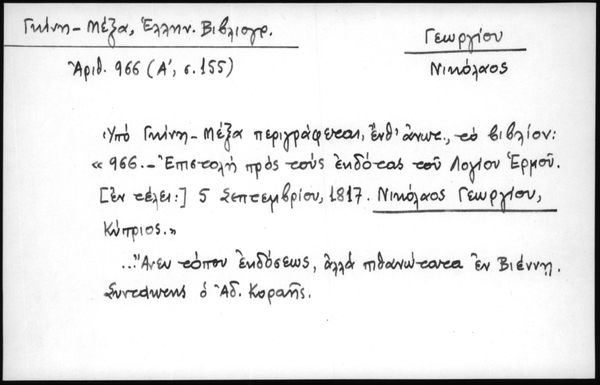 Γκίνη - Μέξα, Ἑλλην. Βιβλιογρ.
Ἀριθ. 966 (Α', σ. 155)
Γεωργίου
Νικόλαος
Ὑπό Γκίνη - Μέξα περιγράφεται, ἔνθ' ἀνωτ., τό βιβλίον:
« 966. - Ἐπιστολή πρός τούς ἐκδότας τοῦ Λογίου Ἑρμοῦ.
[ἐν τέλει:] 5 Σεπτεμβρίου, 1817. Νικόλαος Γεωργίου,
Κύπριος.»
..."Ανευ τόπου ἐκδόσεως, ἀλλά πιθανώτατα ἐν Βιέννῃ.
Συντάκτης ὁ Ἀδ. Κοραῆς.